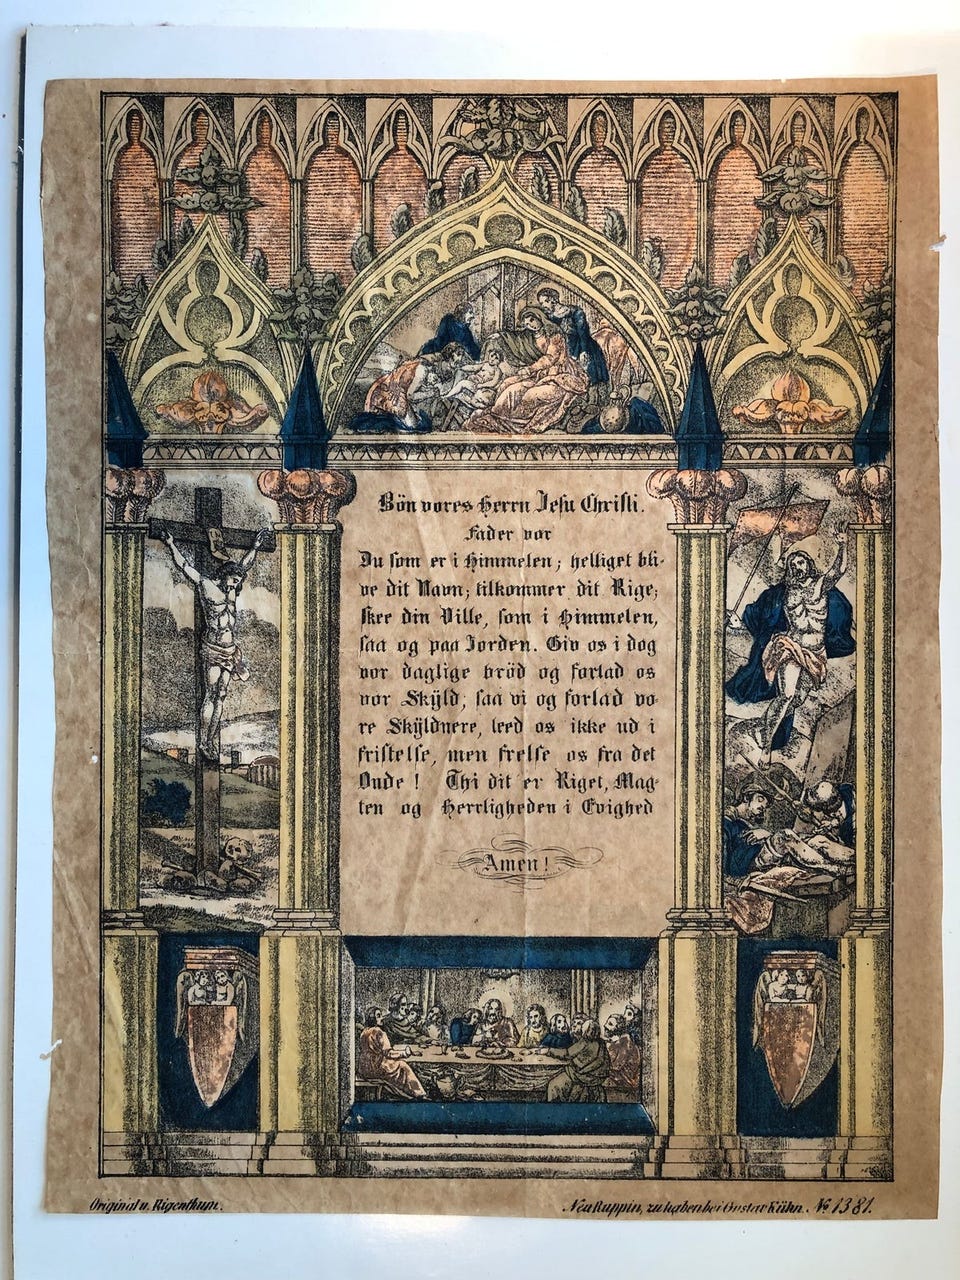 Bön vores Herrn Jesu Christi.
Fader vor
Du som er i Himmelen; helliget bli-
ve dit Navn; tilkommer dit Rige;
skee din Ville, som i Himmelen,
saa og paa Jorden. Giv os i dog
vor daglige bröd og forlad os
vor Skÿld; saa vi og forlad vo-
re Skÿldnere, leed os ikke ud i
fristelse, men frelse os fra det
Onde! Thi dit er Riget, Mag-
ten og Herrligheden i Evighed
Amen!
Original u. Eigenthum.
Neu Ruppin, zu haben bei Gustav Kühn. No 1381.